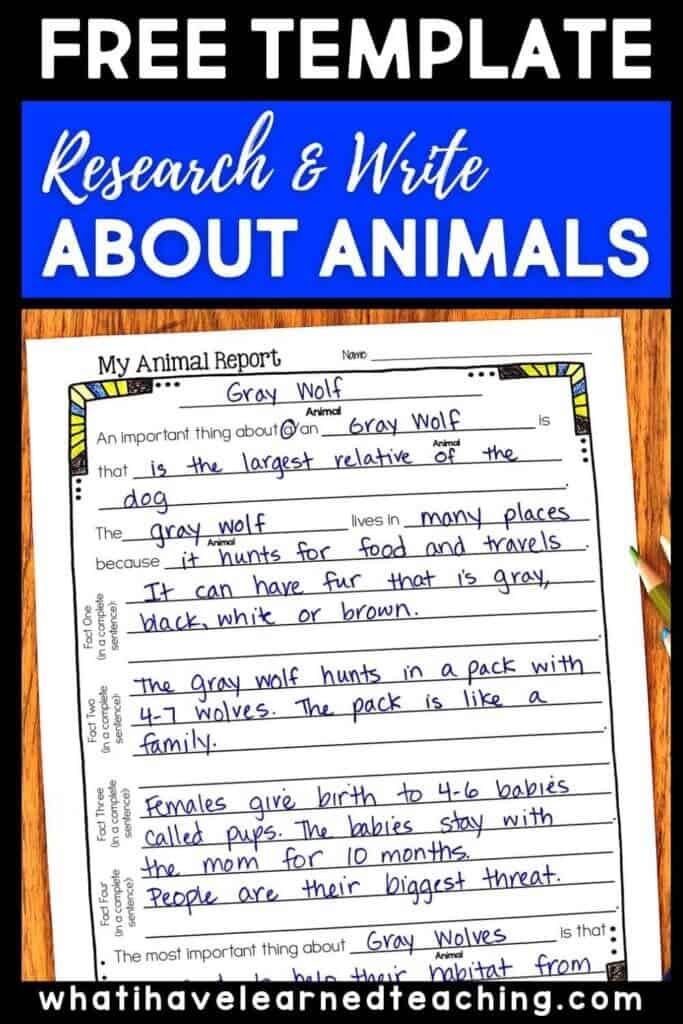 FREE TEMPLATE
Research & Write
ABOUT ANIMALS
My Animal Report Name
Gray Wolf
Animal
An important thing about a/an Gray Wolf is
Animal
that is the largest relative of the
dog.
The gray wolf lives in many places
Animal
because it hunts for food and travels.
Fact One
(in a complete
sentence):
It can have fur that is gray,
black, white or brown.
Fact Two
(in a complete
sentence):
The gray wolf hunts in a pack with
4-7 wolves. The pack is like a
family.
Fact Three
(in a complete
sentence):
Females give birth to 4-6 babies
called pups. The babies stay with
the mom for 10 months.
Fact Four
(in a complete
sentence):
People are their biggest threat.
The most important thing about Gray Wolves is that
Animal
help their habitat from
whatihavelearnedteaching.com